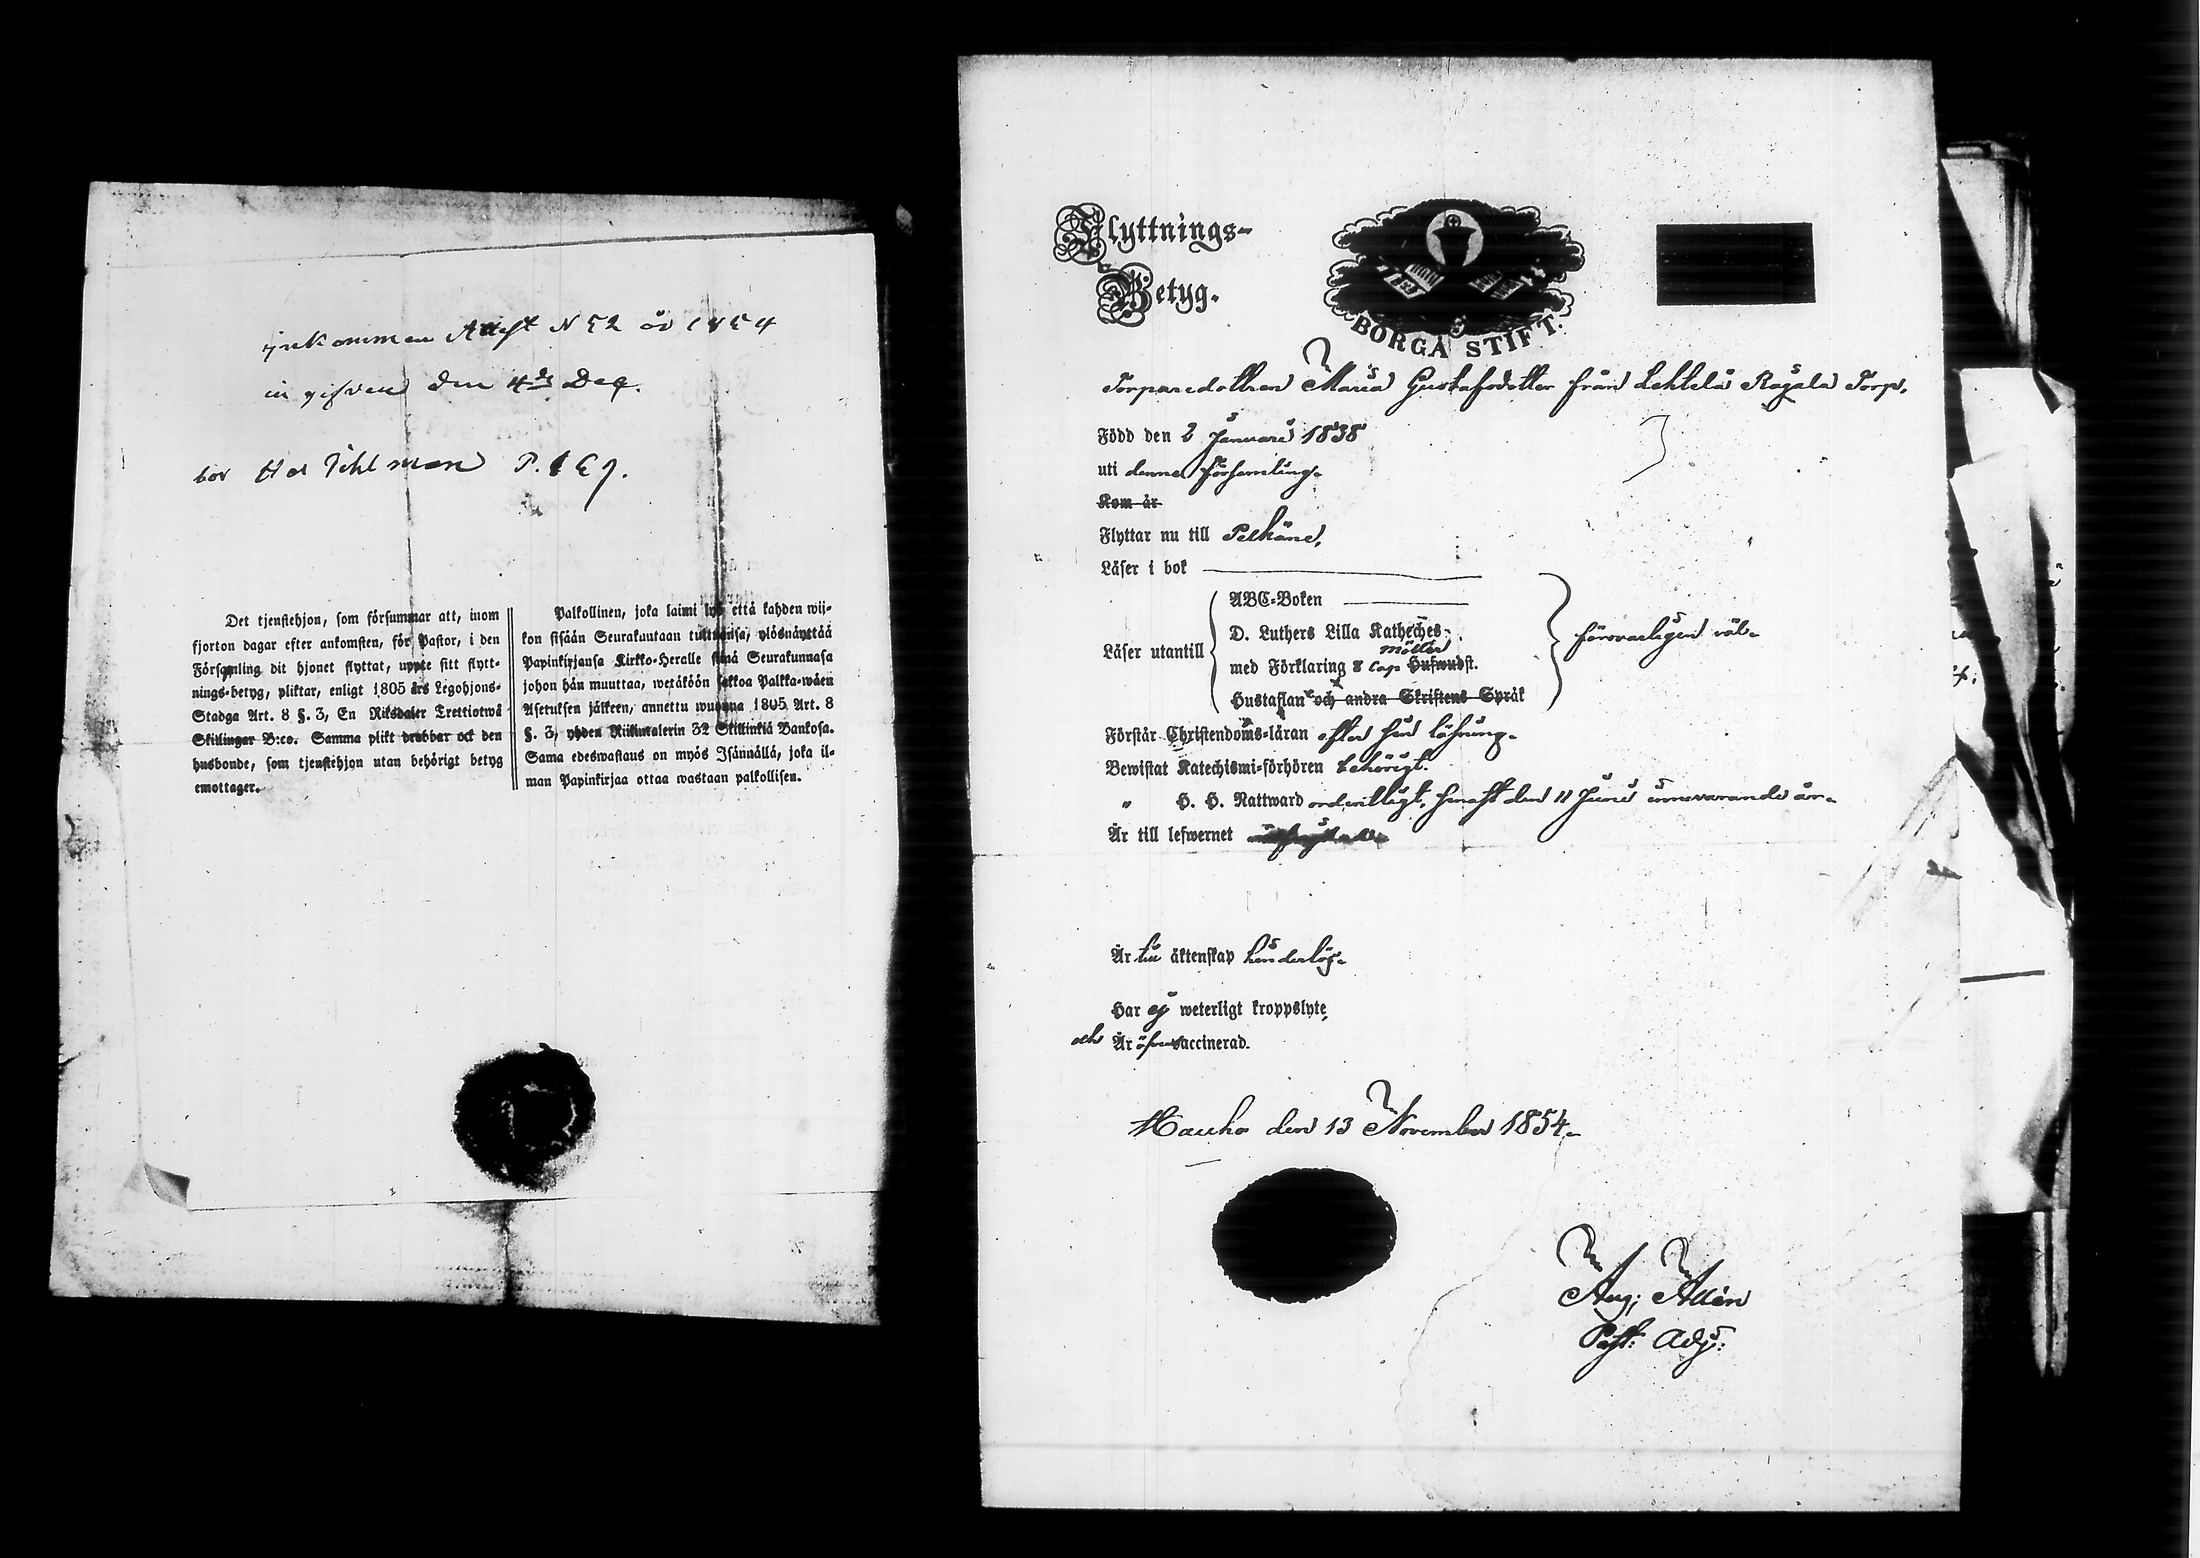 inkommen Attest N 52 år 1854
ingifven den 4de Dec.
bor Hos Tihlman P.
Det tjenstehjon, som försummar att, inom
fjorton dagar efter ankomsten, för Pastor, i den
Församling dit hjonet flyttat, uppte sitt flytt-
nings-betyg, pliktar, enligt 1805 års Legohjons-
Stadga Art. 8 §. 3, En Riksdaler Trettiotwå
Skillingar B:co. Samma plikt drabbar ock den
husbonde, som tjenstehjon utan behörigt betyg
emottager.
Palkollinen, joka laimi lyö että kahden wii-
kon sisään Seurakuntaan tultuansa, ylösnäyttää
Papinkirjansa Kirkko-Heralle siinä Seurakunnasa
johon hän muuttaa, wetäköön sakkoa Palkka-wäen
Asetuksen jälkeen, annettu wuonna 1805 Art. 8
§. 3, yhden Riikintalerin 32 Skillinkiä Bankosa.
Sama edeswastaus on myös Isännällä, joka il-
man Papinkirjaa ottaa wastaan palkollisen.
Flyttnings-
Betyg.
BORGÅ STIFT.
Torparedottren Maria Gustafsdotter från Lehtelä Ragala Torp.
Född den 2 Januari 1838
uti denna församling.
Kom år
Flyttar nu till Pelkäne,
Läser i bok
ABC-Boken
D. Luthers Lilla Katheches-
Läser utantill
försvarligen väl.
möller
med Förklaring 8 Cap Hufwudst.
Hustaflan och andra Skriftens Språk
Förstår Christendoms-läran efter sin läsning.
Bewistat Katechismi-förhören behörigt.
" H. H. Nattward ordentligt, senast den 11 Juni innevarande år.
Är till lefwernet
Är till äktenskap hinderlös.
Har ej weterligt kroppslyte,
och Är äfven vaccinerad.
Hauho den 13 November 1854.
Aug. Allén
Past. Adj: